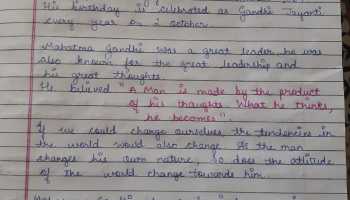 His birthday is celebrated as Gandhi Jayanti
every year on 2 october
Mahatma Gandhi was a great leader, he was
also known for the great leadership and
his great thoughts.
He believed "A Man is made by the product
of his thoughts. What he thinks,
he becomes"
If we could change ourselves, the tendencies in
the world would also change. As the man
changes his own nature, so does the attitude
of the world change towards him.